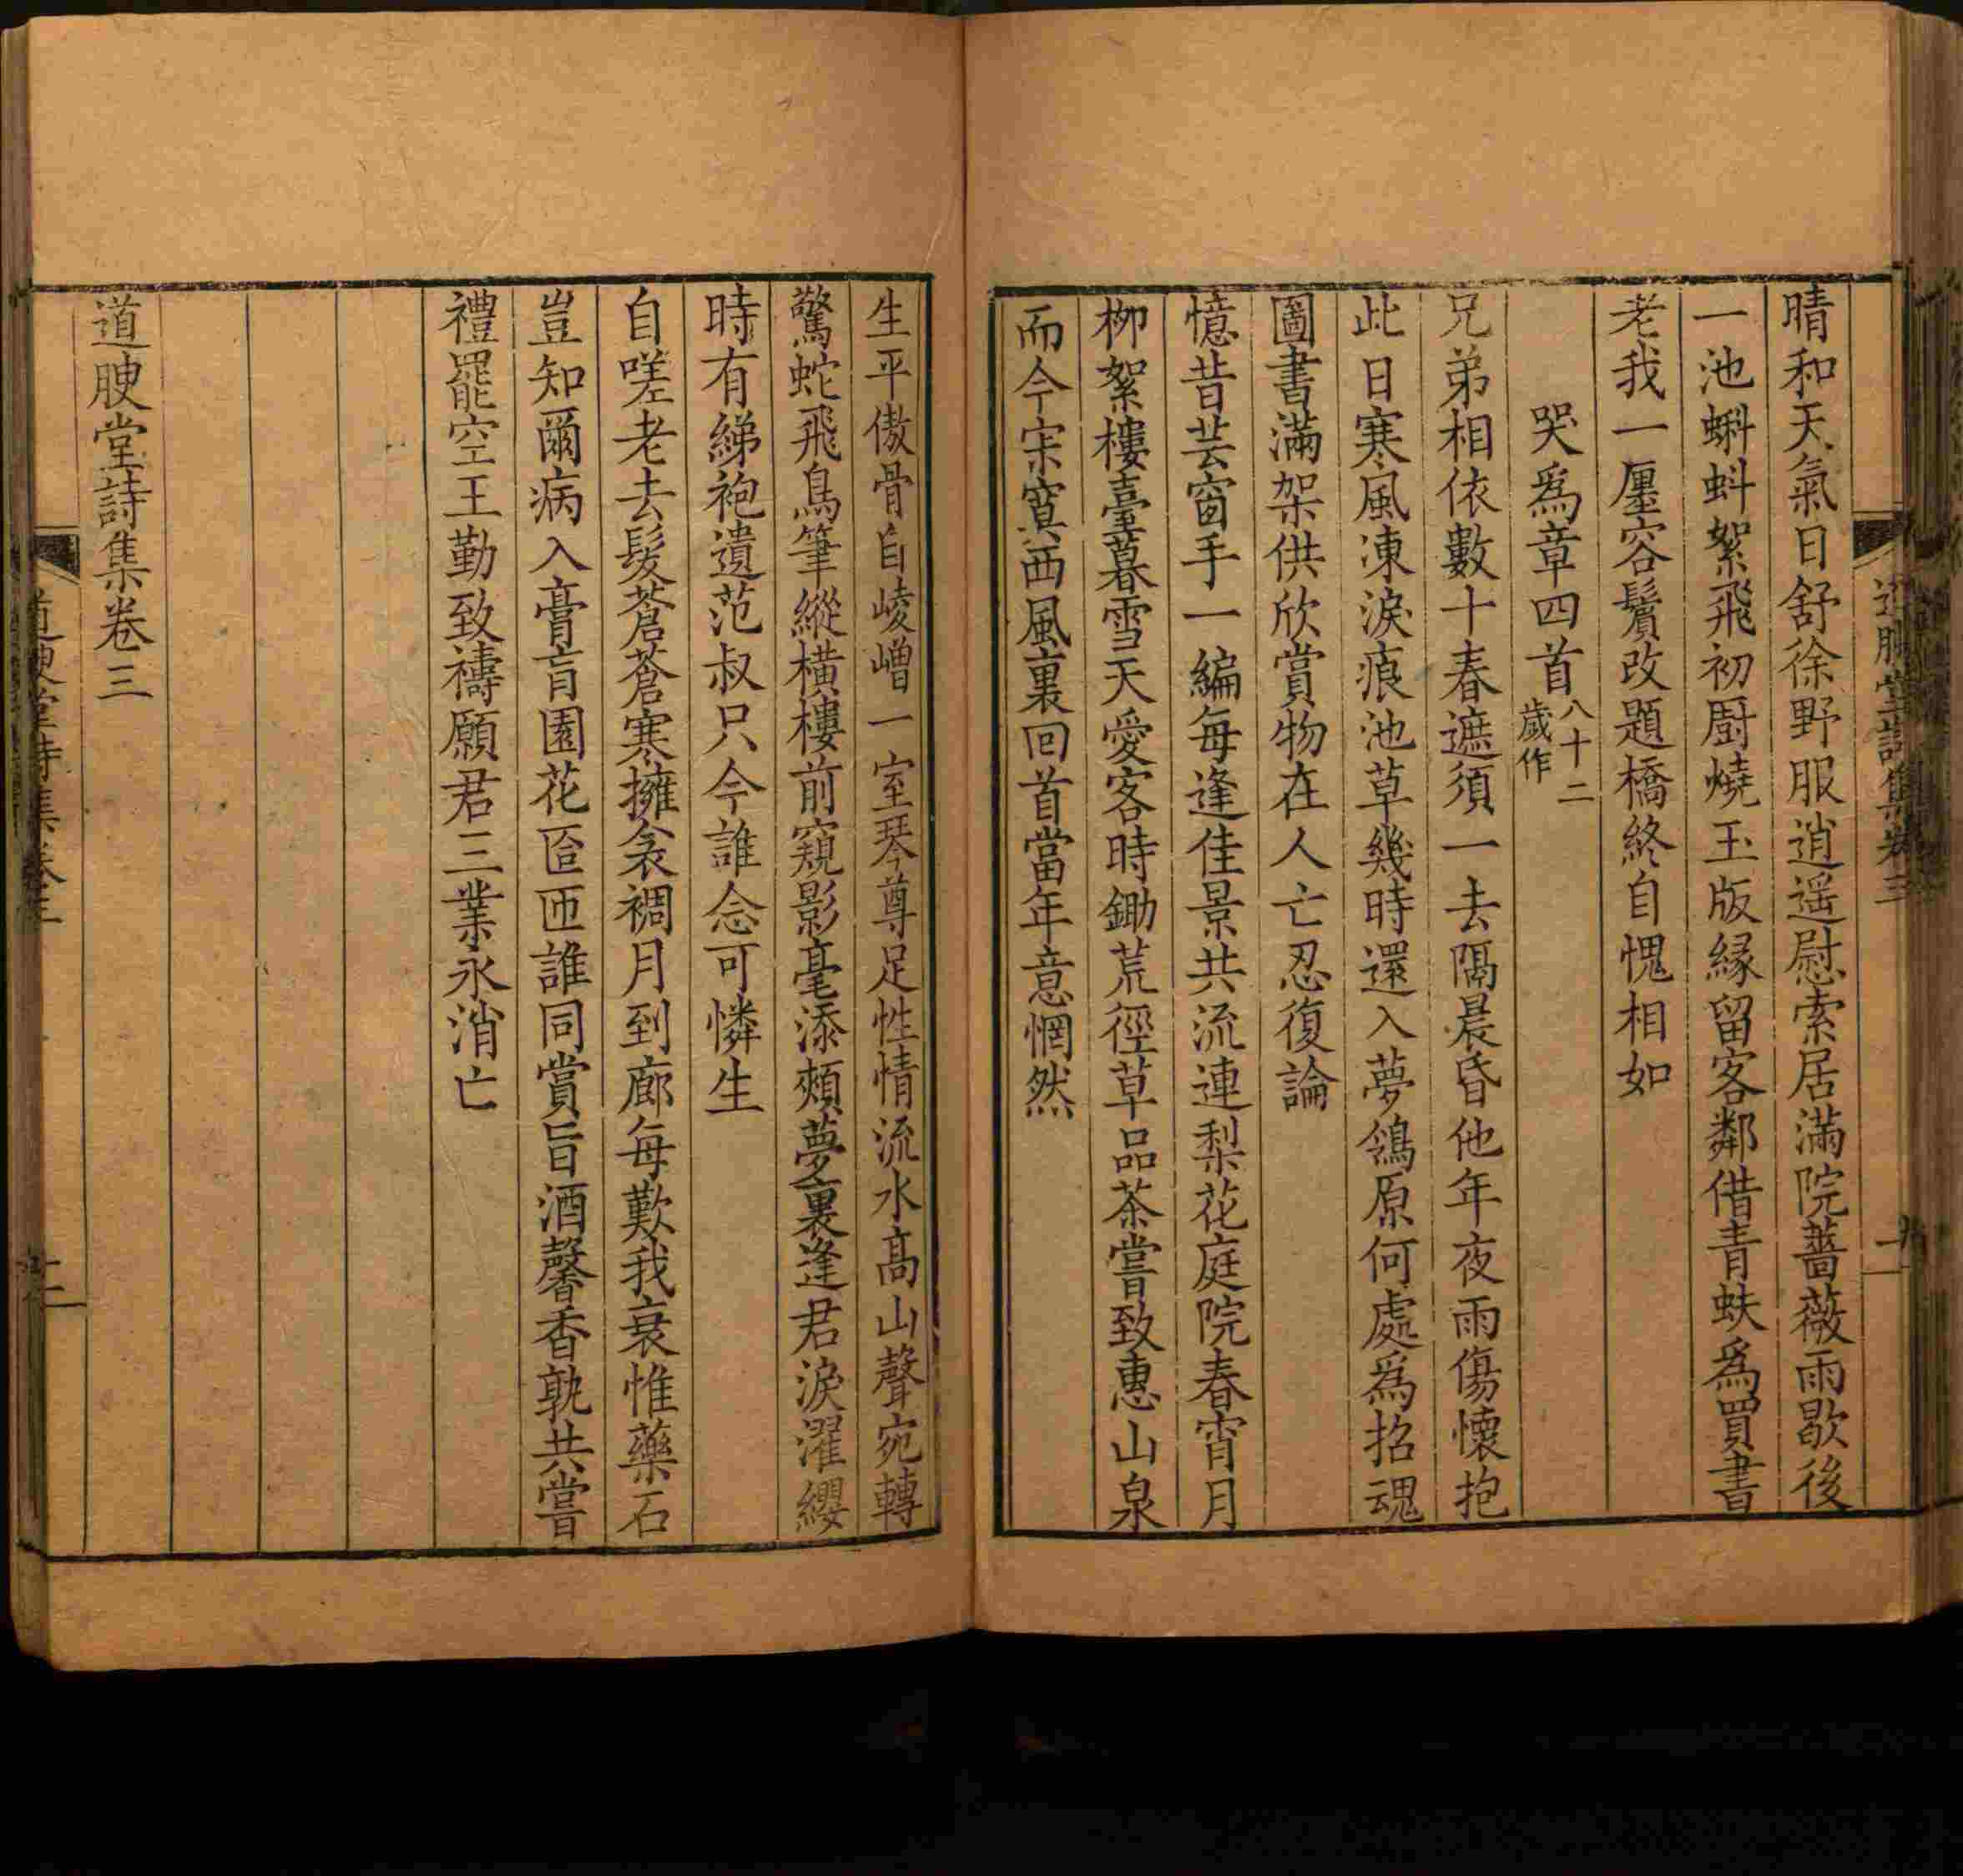 道腴堂詩集卷三
晴和天氣日舒徐野服逍遥慰索居滿院薔薇雨歇後
一池蝌蚪絮飛初厨燒玉版縁留客鄰借青蚨爲買書
老我一廛容鬢改題橋終自愧相如
哭爲章四首八十二歲作
兄弟相依數十春遮須一去隔晨昏他年夜雨傷懷抱
此日寒風凍淚痕池草幾時還入夢鴒原何處爲招魂
圖書滿架供欣賞物在人亡忍復論
憶昔芸窗手一編每逢佳景共流連梨花庭院春宵月
栁絮樓臺暮雪天愛客時鋤荒徑草品茶嘗致惠山泉
而今宋寞西風裏回首當年意惘然
生平傲骨自崚嶒一室琴尊足性情流水高山聲宛轉
驚蛇飛鳥筆縱橫樓前窺影毫添頰夢裏逢君淚濯纓
時有綈袍遺范叔只今誰念可憐生
自嗟老去髮蒼蒼寒擁衾裯月到廊每歎我衰惟藥石
豈知爾病入膏肓園花匼匝誰同賞旨酒馨香孰共嘗
禮罷空王勤致禱願君三業永消亡
道腴堂詩集卷三
道腴堂詩集卷三